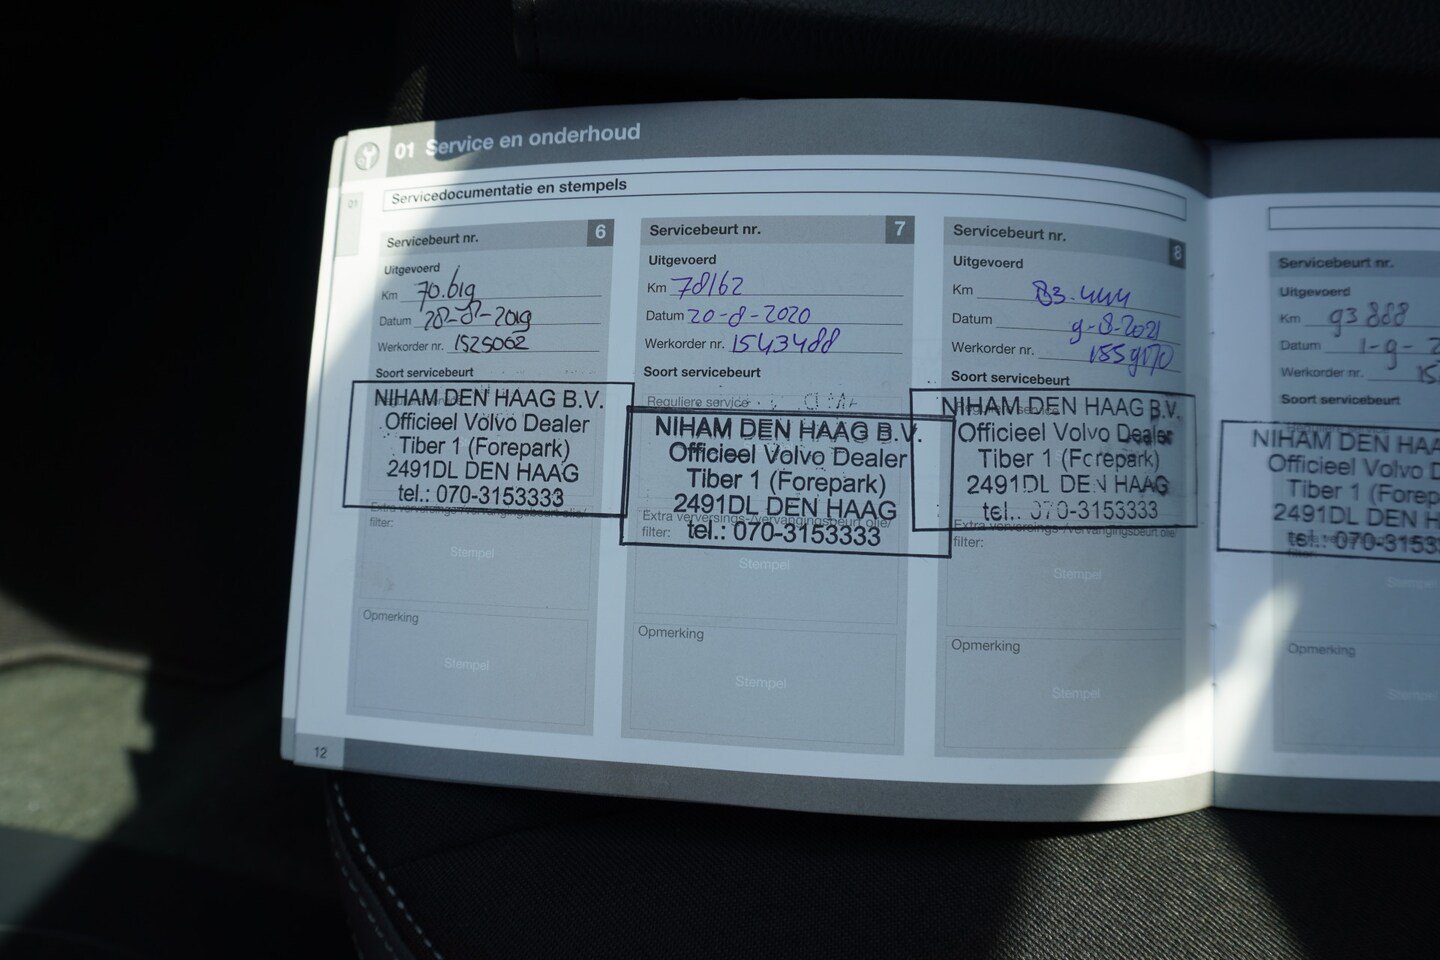 01 Service en onderhoud
01
Servicedocumentatie en stempels
Servicebeurt nr. 6
Uitgevoerd
Km 70.619
Datum 28-8-2019
Werkorder nr. 1525062
Soort servicebeurt
NIHAM DEN HAAG B.V.
Officieel Volvo Dealer
Tiber 1 (Forepark)
2491DL DEN HAAG
tel.: 070-3153333
Extra verversings-/vervangingsbeurt olie/
filter:
Stempel
Opmerking
Stempel
12
Servicebeurt nr. 7
Uitgevoerd
Km 78162
Datum 20-8-2020
Werkorder nr. 1543488
Soort servicebeurt
Reguliere service
NIHAM DEN HAAG B.V.
Officieel Volvo Dealer
Tiber 1 (Forepark)
2491DL DEN HAAG
Extra verversings-/vervangingsbeurt olie/
filter:
tel.: 070-3153333
Stempel
Opmerking
Stempel
Servicebeurt nr. 8
Uitgevoerd
Km 83.444
Datum 9-8-2021
Werkorder nr. 1559170
Soort servicebeurt
Reguliere service
NIHAM DEN HAAG B.V.
Officieel Volvo Dealer
Tiber 1 (Forepark)
2491DL DEN HAAG
tel.: 070-3153333
Extra verversings-/vervangingsbeurt olie/
filter:
Stempel
Opmerking
Stempel
Servicebeurt nr.
Uitgevoerd
Km 93888
Datum 1-9-2
Werkorder nr. 15
Soort servicebeurt
NIHAM DEN HAA
Officieel Volvo D
Tiber 1 (Forep
2491DL DEN H
tel.: 070-3153
filter:
Stempel
Opmerking
Stempel